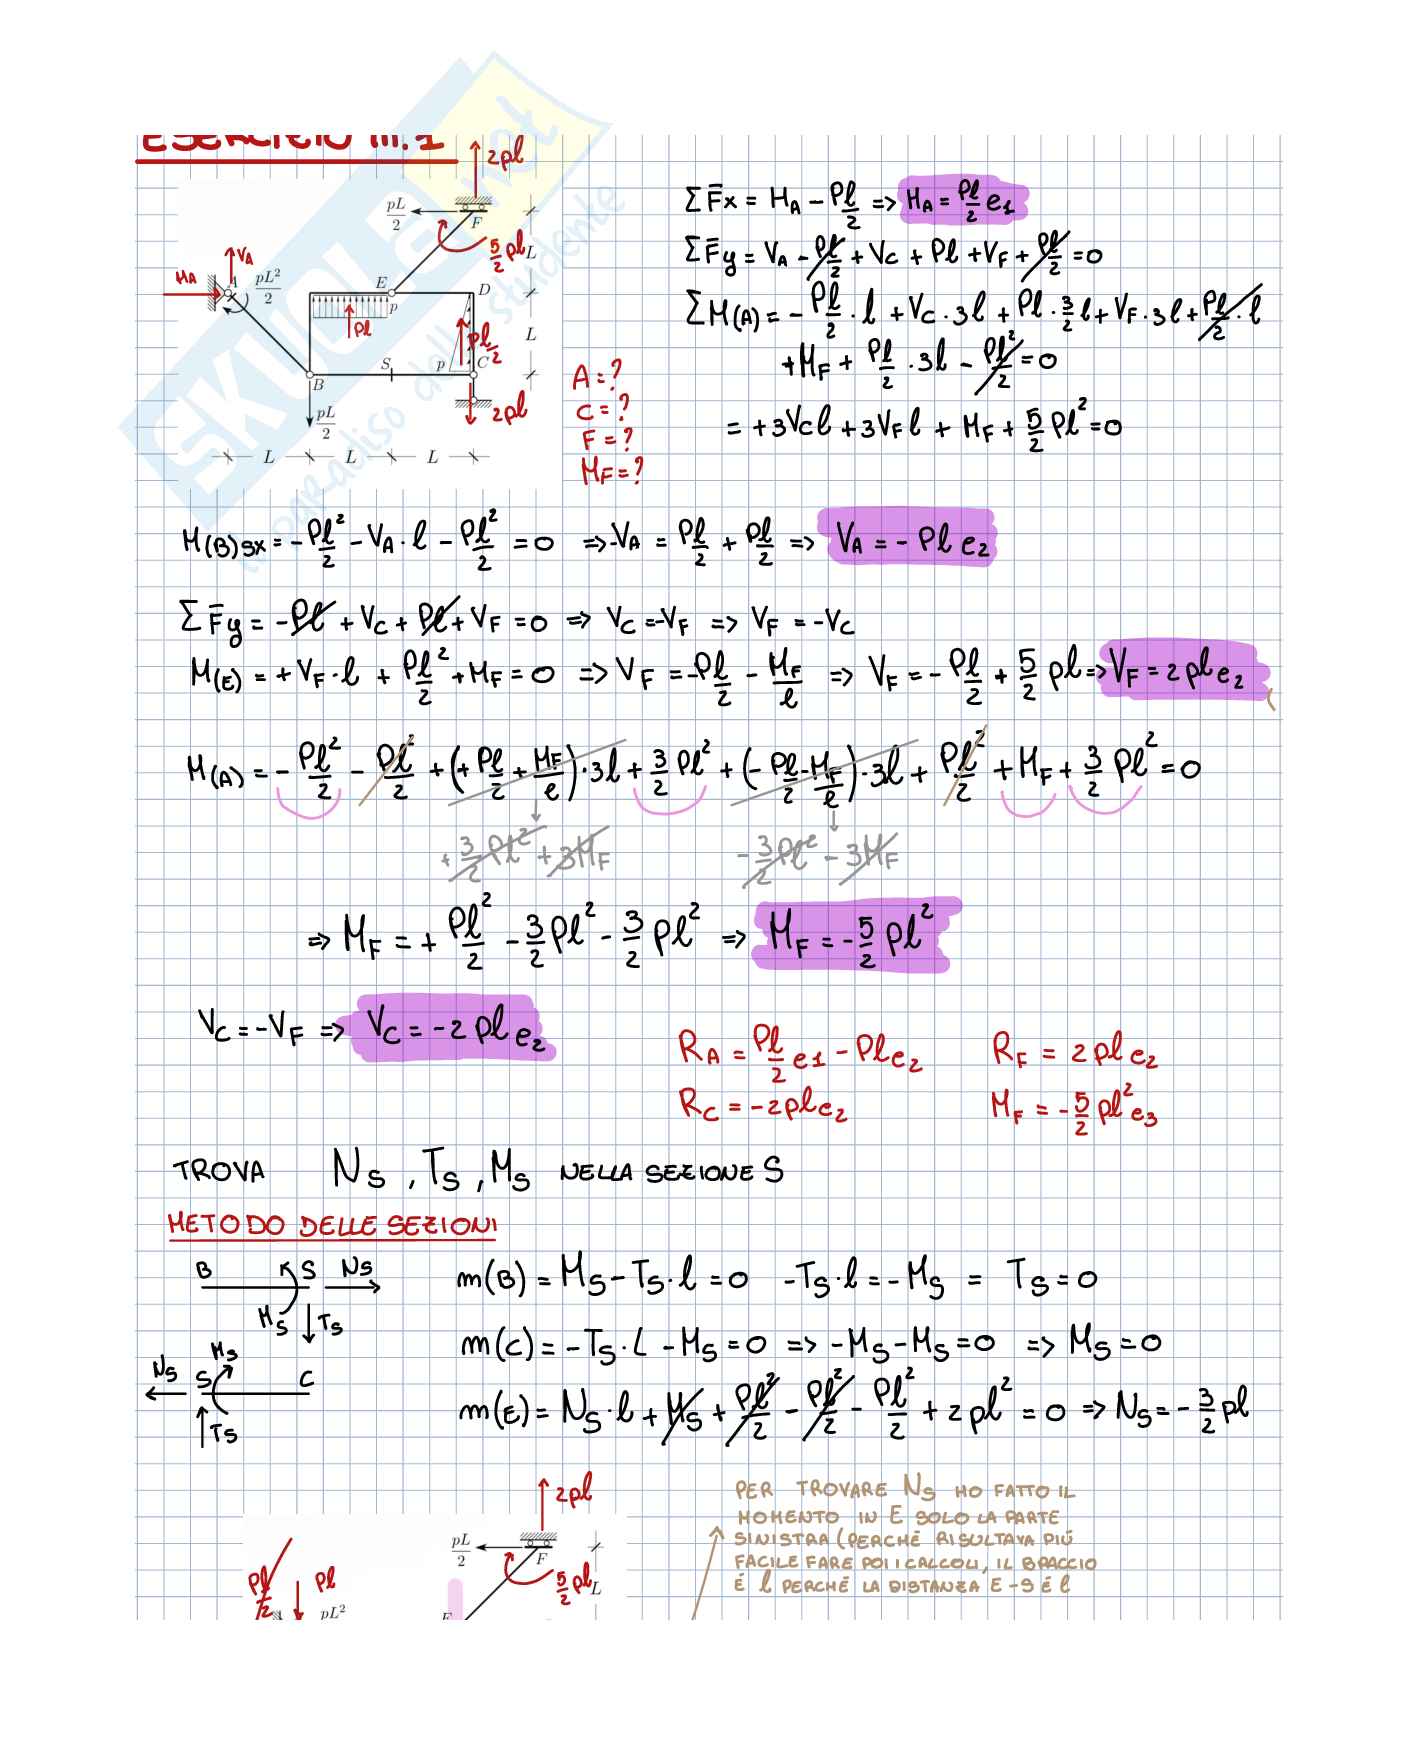 ESERCIZIO III.1
2pl
pL/2
F
5/2 pl
L
V_A
H_A
A
pL²/2
E
D
p
Pl
Pl/2
L
B
S
p
C
pL/2
2pl
L L L
A = ?
C = ?
F = ?
M_F = ?
ΣF̄x = H_A - Pl/2 => H_A = Pl/2 e1
ΣF̄y = V_A - Pl/2 + V_C + Pl + V_F + Pl/2 = 0
ΣM(A) = - Pl/2 · l + V_C · 3l + Pl · 3/2 l + V_F · 3l + Pl/2 · l
+ M_F + Pl/2 · 3l - Pl²/2 = 0
= + 3V_C l + 3V_F l + M_F + 5/2 Pl² = 0
M(B)sx = - Pl²/2 - V_A · l - Pl²/2 = 0 => -V_A = Pl/2 + Pl/2 => V_A = - Pl e2
ΣF̄y = - Pl + V_C + Pl + V_F = 0 => V_C = -V_F => V_F = -V_C
M(E) = + V_F · l + Pl²/2 + M_F = 0 => V_F = - Pl/2 - M_F/l => V_F = - Pl/2 + 5/2 pl => V_F = 2 pl e2
M(A) = - Pl²/2 - Pl²/2 + (+ Pl/2 + M_F/l) · 3l + 3/2 Pl² + (- Pl/2 - M_F/l) · 3l + Pl²/2 + M_F + 3/2 Pl² = 0
+ 3/2 Pl² + 3M_F - 3/2 Pl² - 3M_F
=> M_F = + Pl²/2 - 3/2 Pl² - 3/2 Pl² => M_F = - 5/2 pl²
V_C = -V_F => V_C = -2 pl e2
R_A = Pl/2 e1 - Pl e2 R_F = 2 pl e2
R_C = -2pl e2 M_F = - 5/2 pl² e3
TROVA N_S , T_S , M_S NELLA SEZIONE S
METODO DELLE SEZIONI
B S N_S
M_S T_S
m(B) = M_S - T_S · l = 0 -T_S · l = - M_S = T_S = 0
N_S M_S S C
T_S
m(C) = - T_S · L - M_S = 0 => - M_S - M_S = 0 => M_S = 0
m(E) = N_S · l + M_S + Pl²/2 - Pl²/2 - Pl²/2 + 2 pl² = 0 => N_S = - 3/2 pl
PER TROVARE N_S HO FATTO IL
MOMENTO IN E SOLO LA PARTE
SINISTRA (PERCHÉ RISULTAVA PIÚ
FACILE FARE POI I CALCOLI, IL BRACCIO
É l PERCHÉ LA DISTANZA E-S É l
2pl
pL/2
F
5/2 pl
L
Pl/2
Pl
pL²
E
SKUOLA.net
il paradiso dello studente